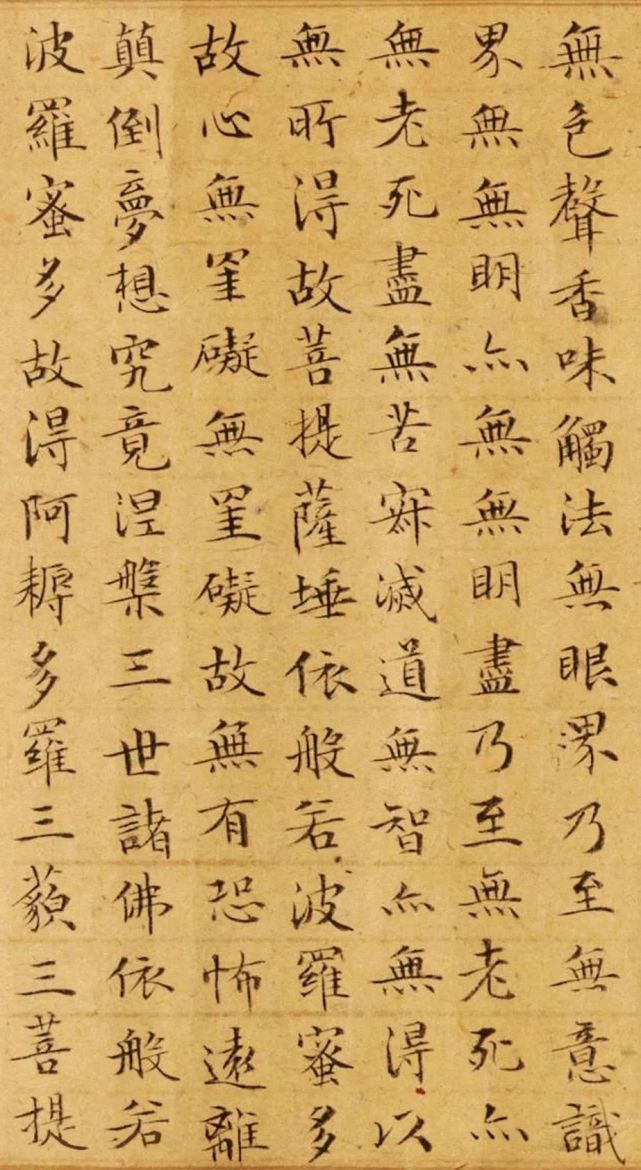 無色聲香味觸法無眼界乃至無意識
界無無明亦無無明盡乃至無老死亦
無老死盡無苦㝷滅道無智亦無得以
無所得故菩提薩埵依般若波羅蜜多
故心無罣礙無罣礙故無有恐怖遠離
顛倒夢想究竟涅槃三世諸佛依般若
波羅蜜多故得阿耨多羅三藐三菩提